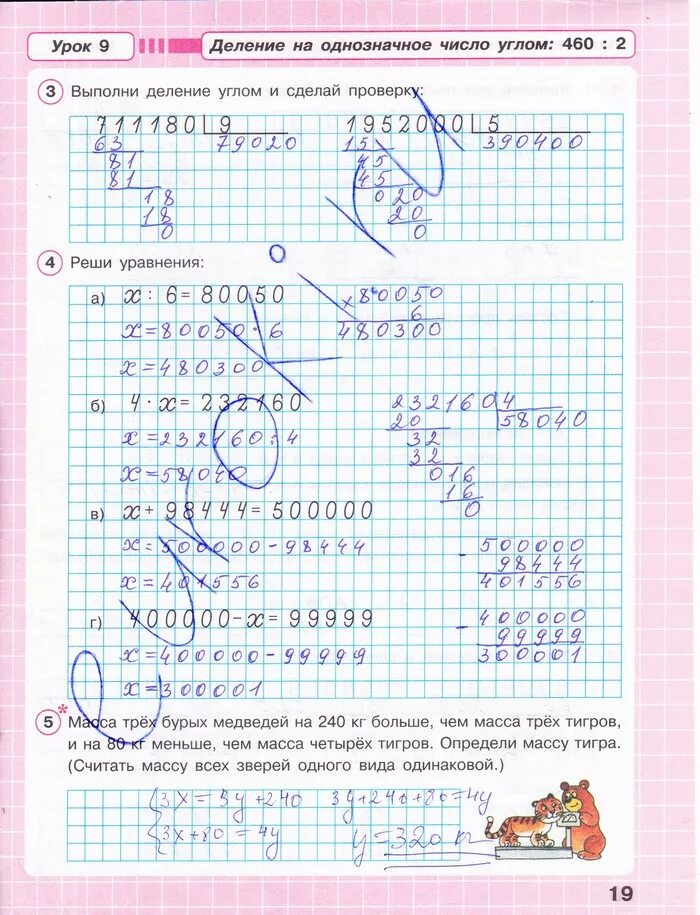 Урок 9
Деление на однозначное число углом: 460 : 2
3 Выполни деление углом и сделай проверку:
711180 9 1952000 5
63 79020 15 390400
81 45
81 45
18 020
18 20
0 0
4 Реши уравнения:
а) x : 6 = 80050 ×80050
x = 80050 · 6 6
x = 480300 480300
б) 4 · x = 232160 232160 4
x = 232160 : 4 20 58040
32
x = 58040 32
016
16
0
в) x + 98444 = 500000
x = 500000 - 98444 - 500000
98444
x = 401556 401556
г) 400000 - x = 99999 - 400000
99999
x = 400000 - 99999 300001
x = 300001
5* Масса трёх бурых медведей на 240 кг больше, чем масса трёх тигров,
и на 80 кг меньше, чем масса четырёх тигров. Определи массу тигра.
(Считать массу всех зверей одного вида одинаковой.)
{3x = 3y + 240 3y + 240 + 80 = 4y
3x + 80 = 4y y = 320 кг
19